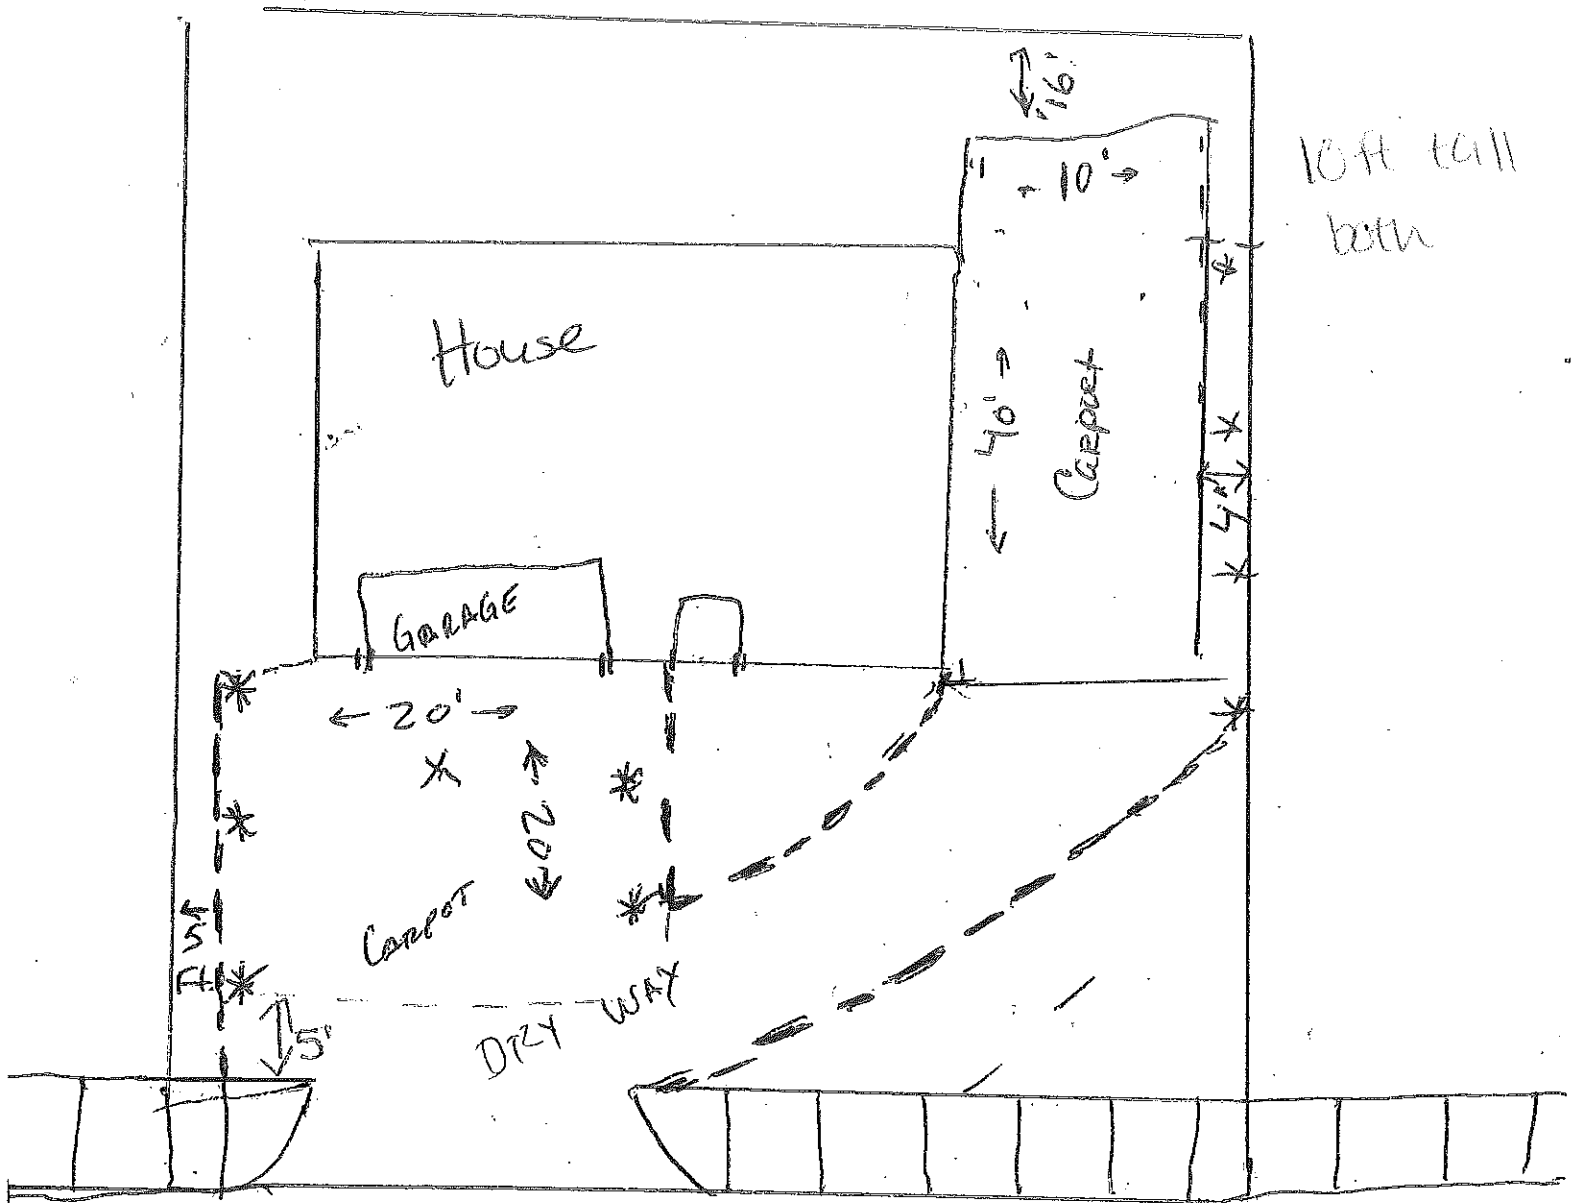 16'
10'
10ft tall
both
House
40'
Carport
4"
GARAGE
20'
20
5
Ft
CARPOT
DRY WAY
5'